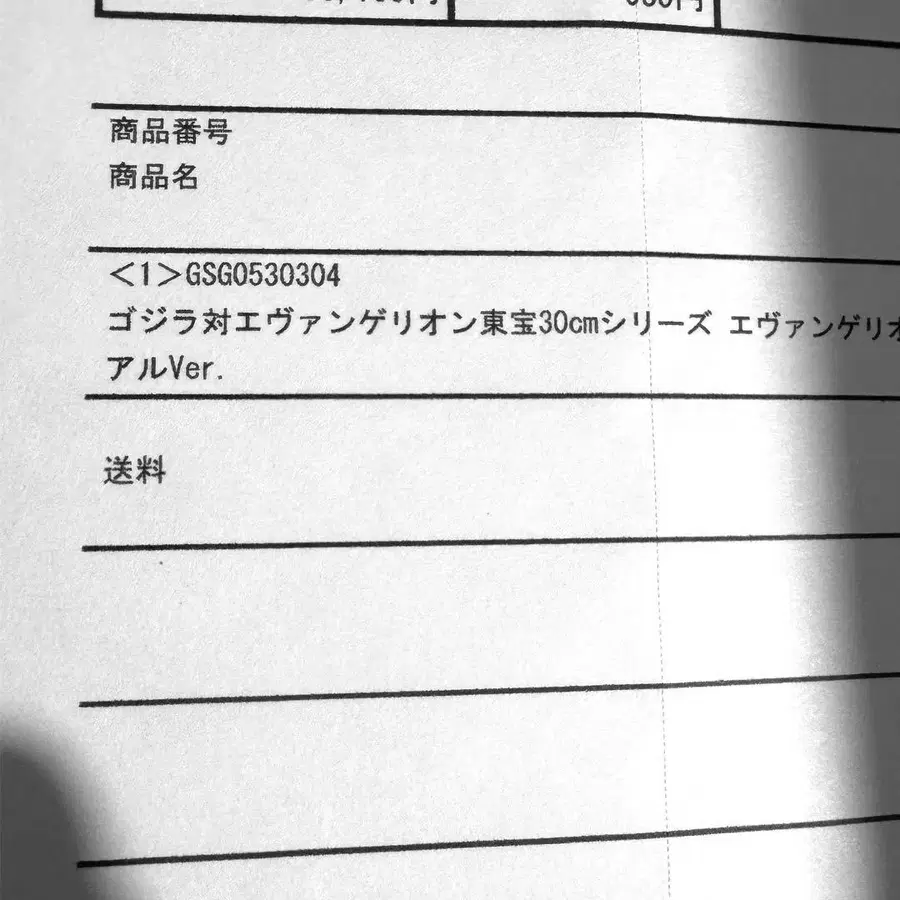 商品番号
商品名
<1>GSG0530304
ゴジラ対エヴァンゲリオン東宝30cmシリーズ エヴァンゲリオ
アルVer.
送料